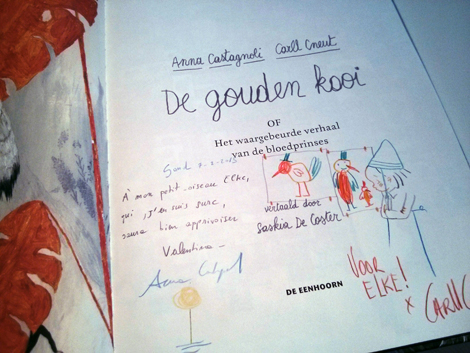 Anna Castagnoli Carll Cneut
De gouden kooi
OF
Het waargebeurde verhaal
van de bloedprinses
À mon petit oiseau Elke,
qui, j'en suis sure,
saura bien apprivoiser
Valentina -
vertaald door
Saskia De Coster
DE EENHOORN
VOOR
ELKE!
x CARLLC